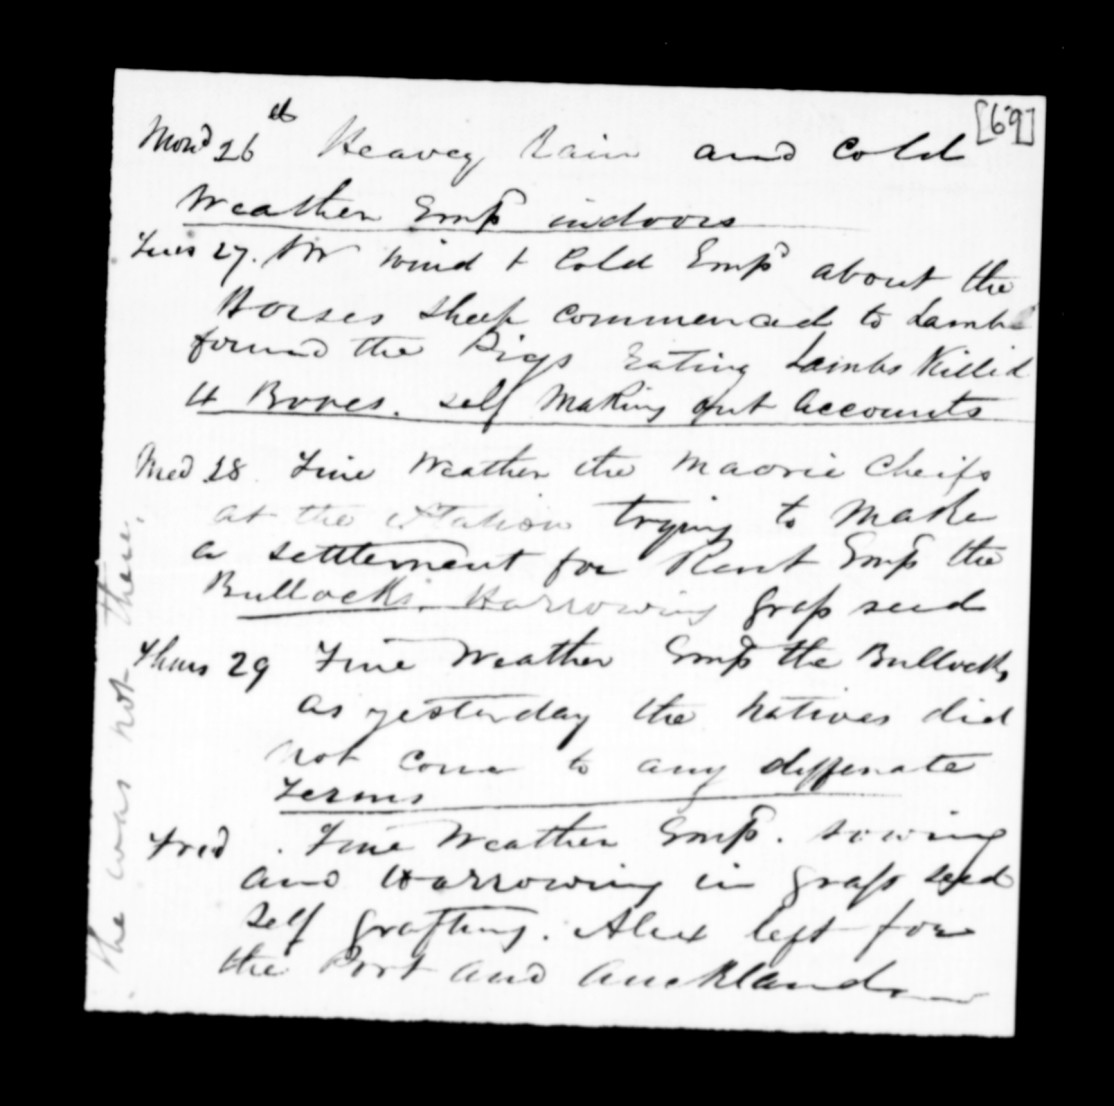 [69]
Mond 26th Heavey Rain and Cold
Weather Empd indoors
Tues 27. NW Wind & Cold Empd about the
Horses Sheep Commenced to Lamb
found the Pigs Eating Lambs Killed
4 Bores. Self Making out Accounts
Wed 28 Fine Weather the Maorie Cheifs
at the Station trying to Make
a settlement for Rent Empd the
Bullocks. Harrowing Grass seed
Thurs 29 Fine Weather Empd the Bullocks
as yesterday the Natives did
not Come to any deffenate
Terms
Frid. Fine Weather Empd. sowing
and Harrowing in Grass seed
Self grafting. Alex left for
the Port and Auckland
he was not there.